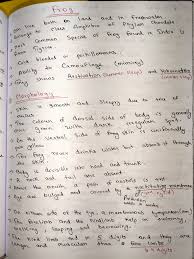 Frog
can live both on land and in freshwater
belongs to class Amphibia of Phylum Chordata
most common species of Frog found in India is
Rana tigrina
cold blooded or poikilotherms
ability to Camouflage (mimicry)
They shows Aestivation (Summer sleep) and Hibernation (winter sleep)
Morphology
Skin is smooth and slippery due to
The colour of dorsal side of body is generally
green with
On the ventral side of frog skin is uniformly
yellow
The frog never drinks water but absorb it through
skin
Body is divisible into head and trunk
A neck and tail are absent
Above the mouth, a pair of nostrils is
Eyes are bulged and covered by a nictitating membrane
On either side of the eye, a membranous tympanum (ear)
The forelimbs and the hindlimbs help in swimming
walking, leaping and burrowing
The hind limbs end in 5 digits and they are
larger and muscular than fore limbs
4 digits